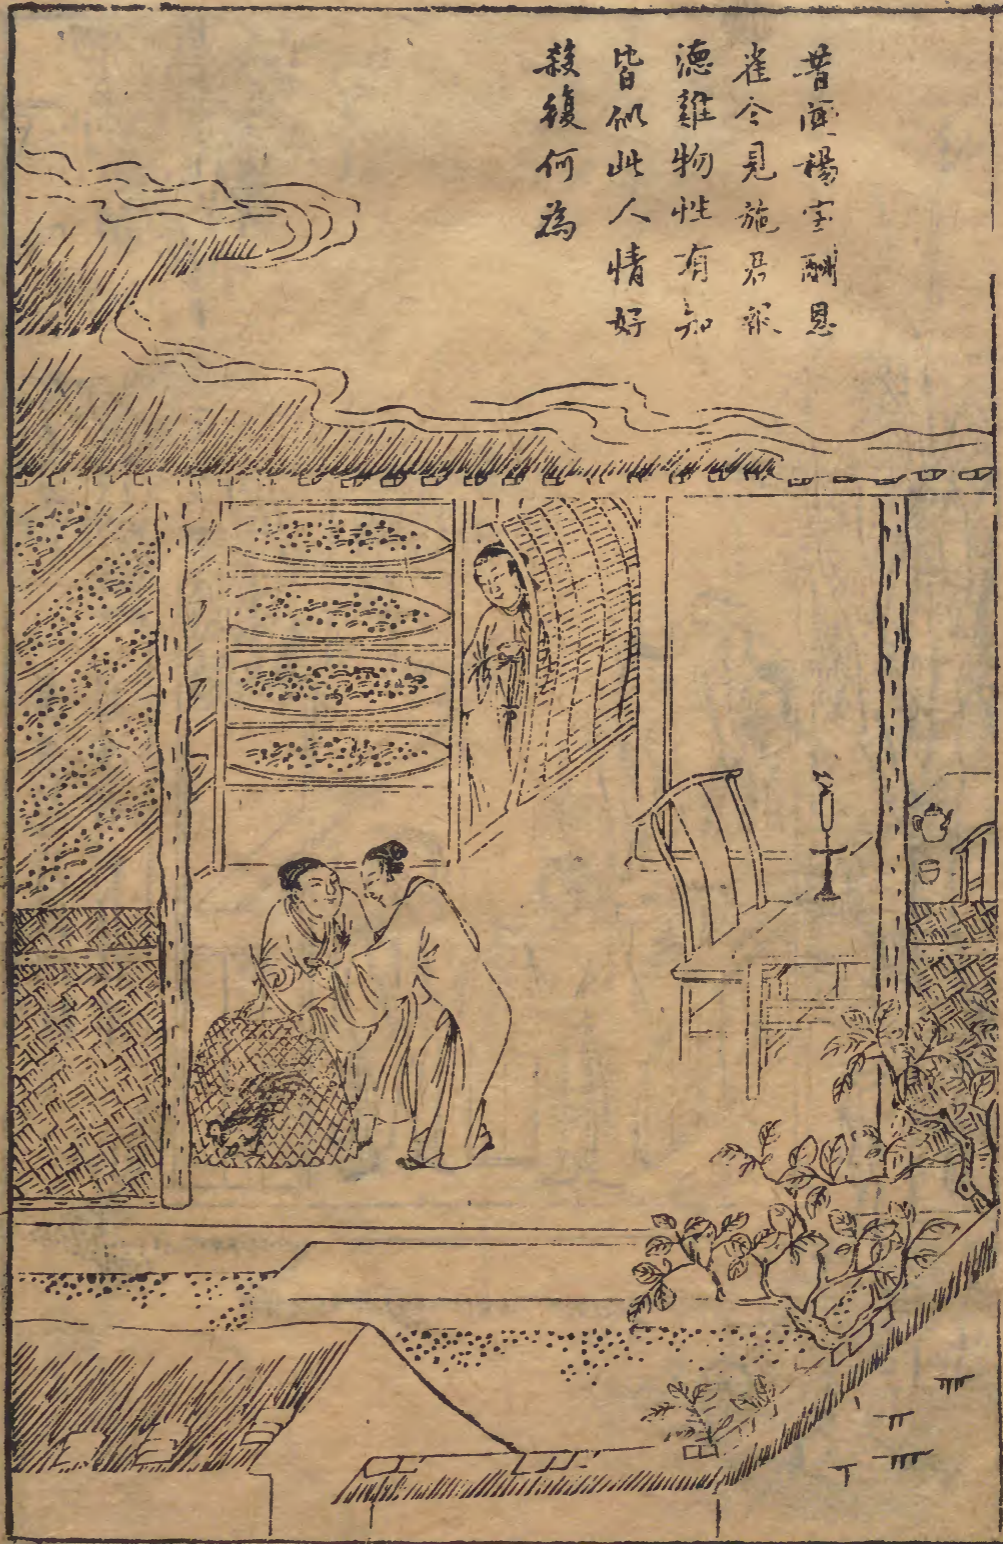 昔聞楊宝酬恩
雀今見施君報
德雞物性有知
皆似此人情好
殺復何為